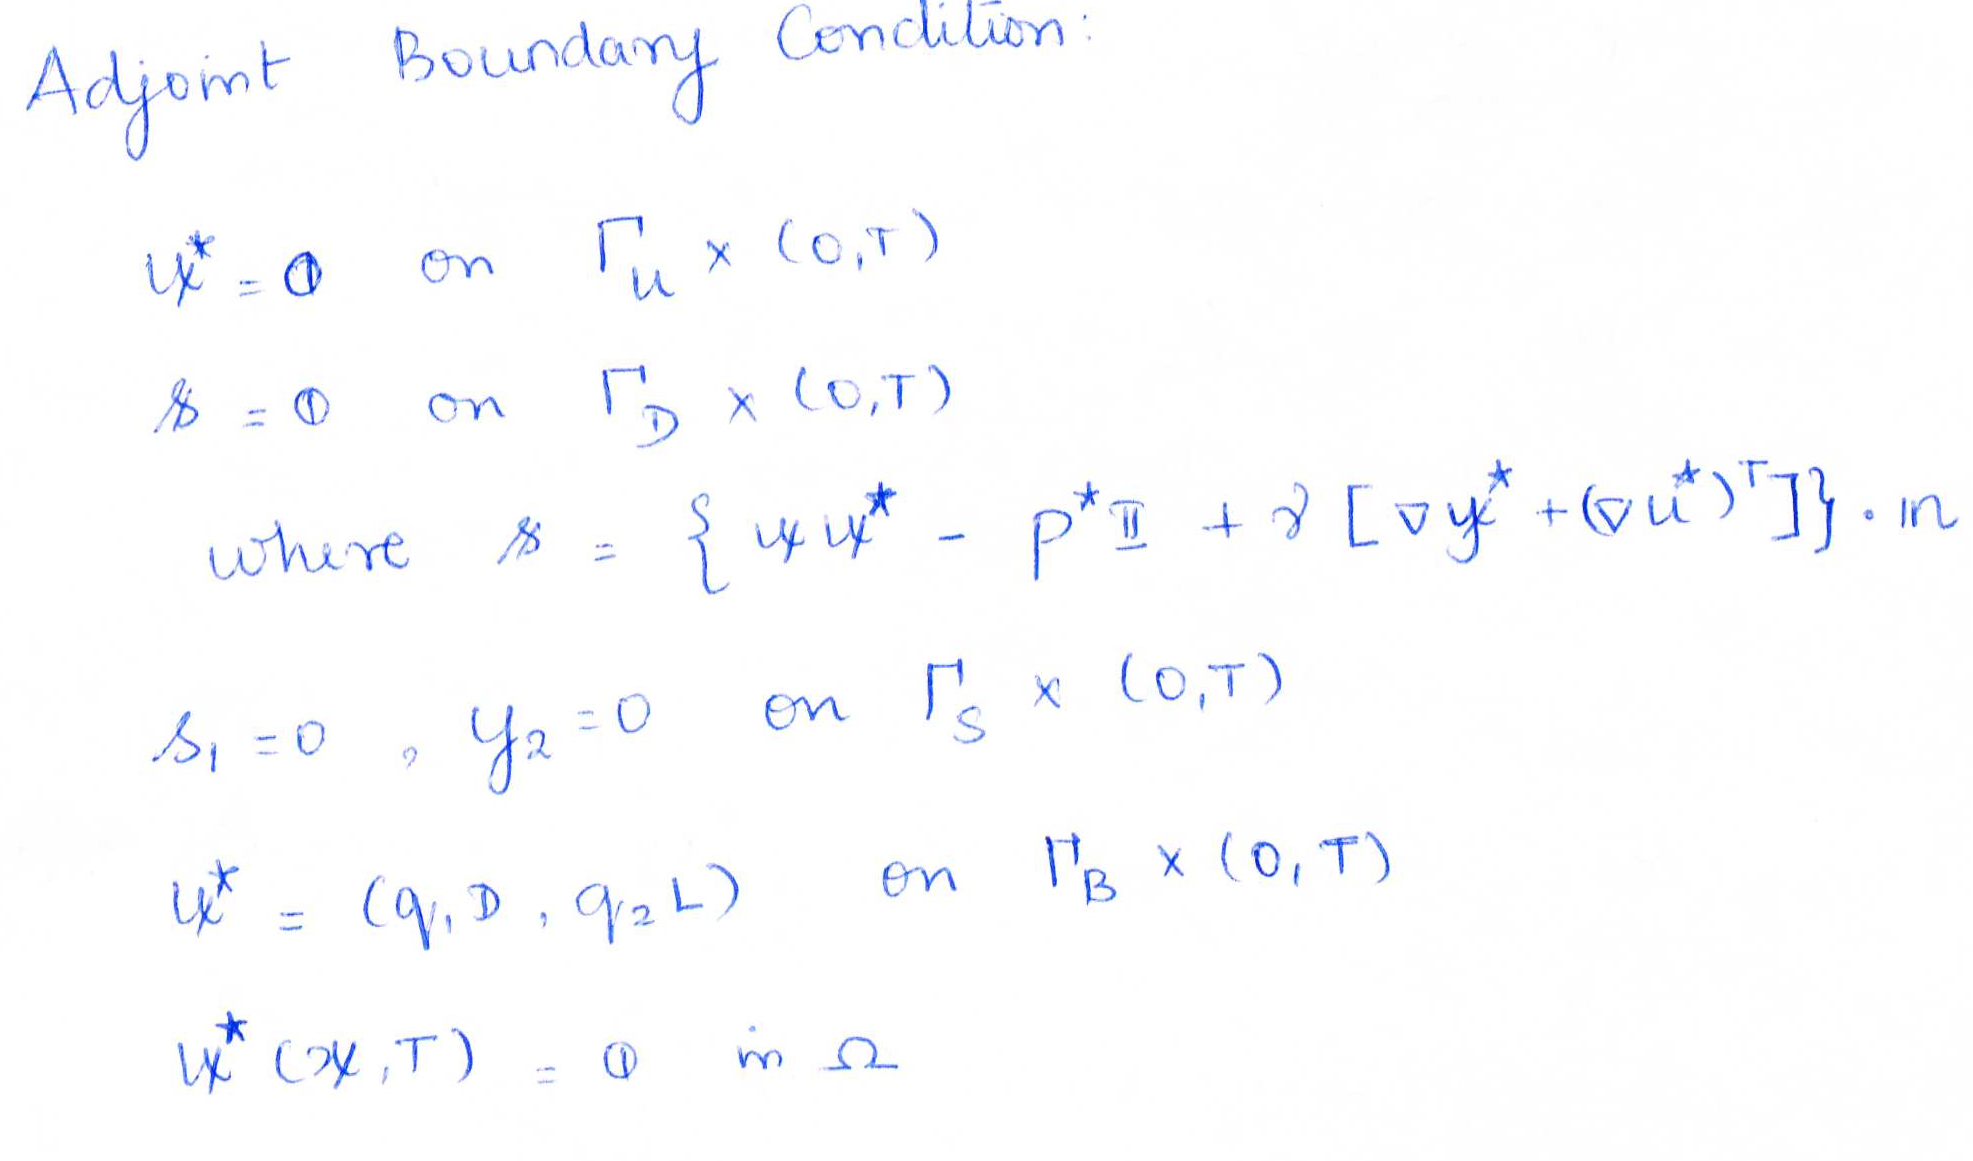 Adjoint Boundary Condition:
𝕦* = 𝟘 on Γ_u × (0,T)
𝕤 = 𝟘 on Γ_D × (0,T)
where 𝕤 = { 𝕦 𝕦* - p* 𝕀 + ν [ ∇𝕦* + (∇𝕦*)ᵀ ] } · 𝕟
s₁ = 0 , y₂ = 0 on Γ_S × (0,T)
𝕦* = (q₁D, q₂L) on Γ_B × (0,T)
𝕦* (𝕩,T) = 𝟘 in Ω